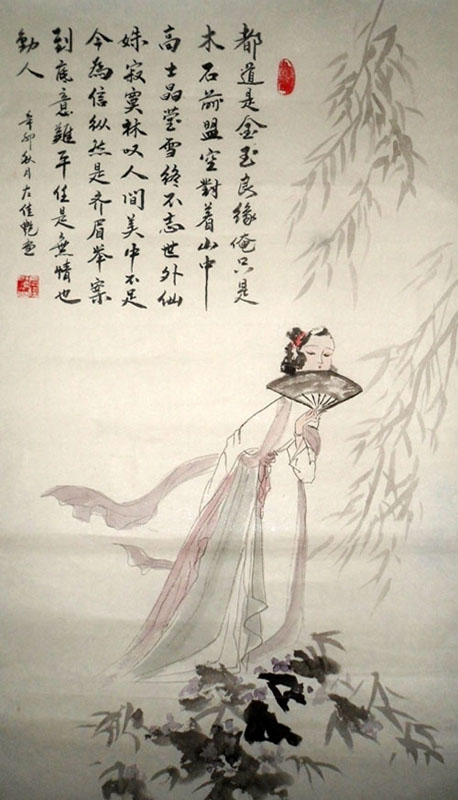 都道是金玉良緣俺只是
木石前盟空對着山中
高士晶瑩雪終不忘世外仙
姝寂寞林叹人間美中不足
今為信縱然是齐眉举案
到底意難平任是無情也
動人
辛卯秋月